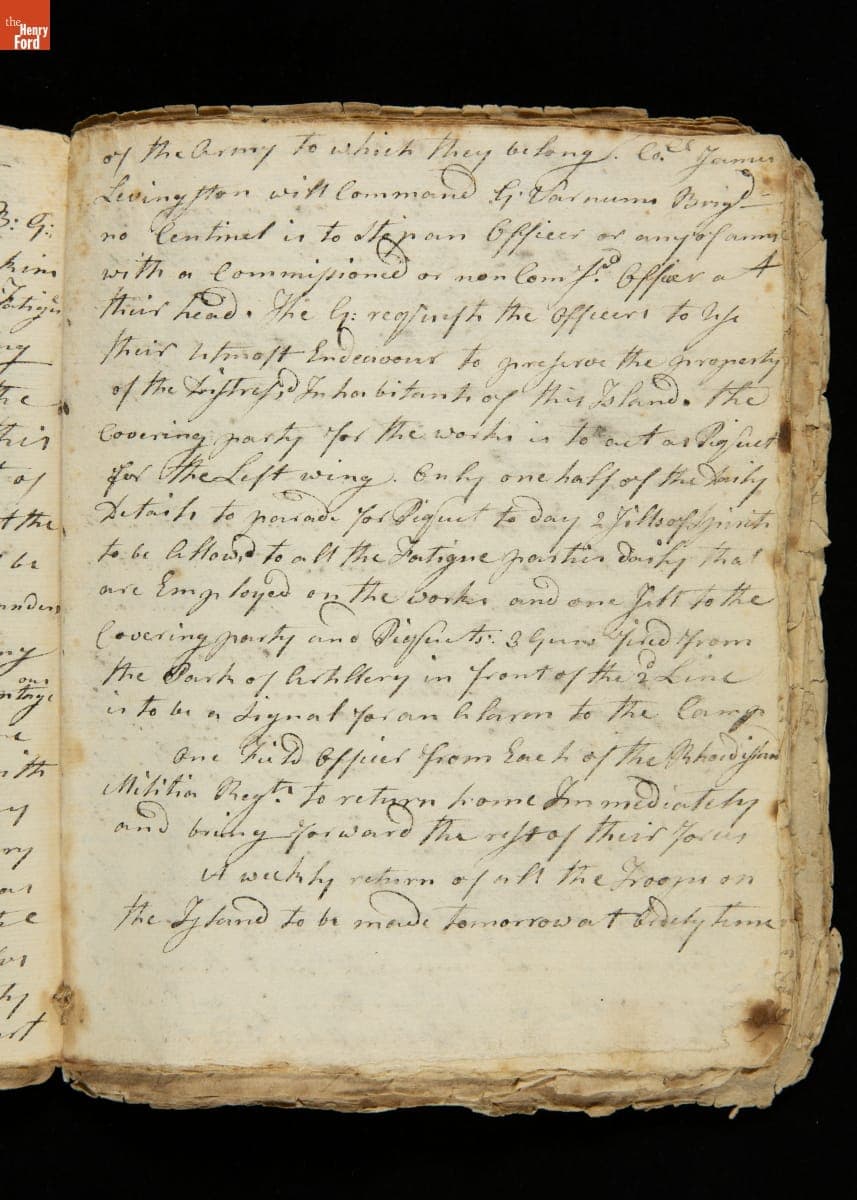 the
Henry
Ford
of the Army to which they belong. Co.ll James
Levingston will Command G: Varnums Brigd
no Centinel is to Stop an Officer or any of
with a Commissioned or non Comsd. Officer at
their head. The G: requests the Officers to Use
their Utmost Endeavour to preserve the property
of the Distresd Inhabitants of this Island. the
Covering party for the works is to act as Piquet
for the Left wing. Only one half of the Daily
Details to parade for Piquet to day 2 Jills of Spirits
to be Allowd to all the Fatigue parties daily that
are Employed on the works and one Jill to the
Covering party and Piquets: 3 Guns fired from
the Park of Artillery in front of the 2d Line
is to be a Signal for an Alarm to the Camp
one Field Officer from Each of the Rhodisland
Militia Regts. to return home Immediately
and bring forward the rest of their forces
A weekly return of all the Troops on
the Island to be made tomorrow at Orderly time
B: G:
the
of
the
be
my
our
ry